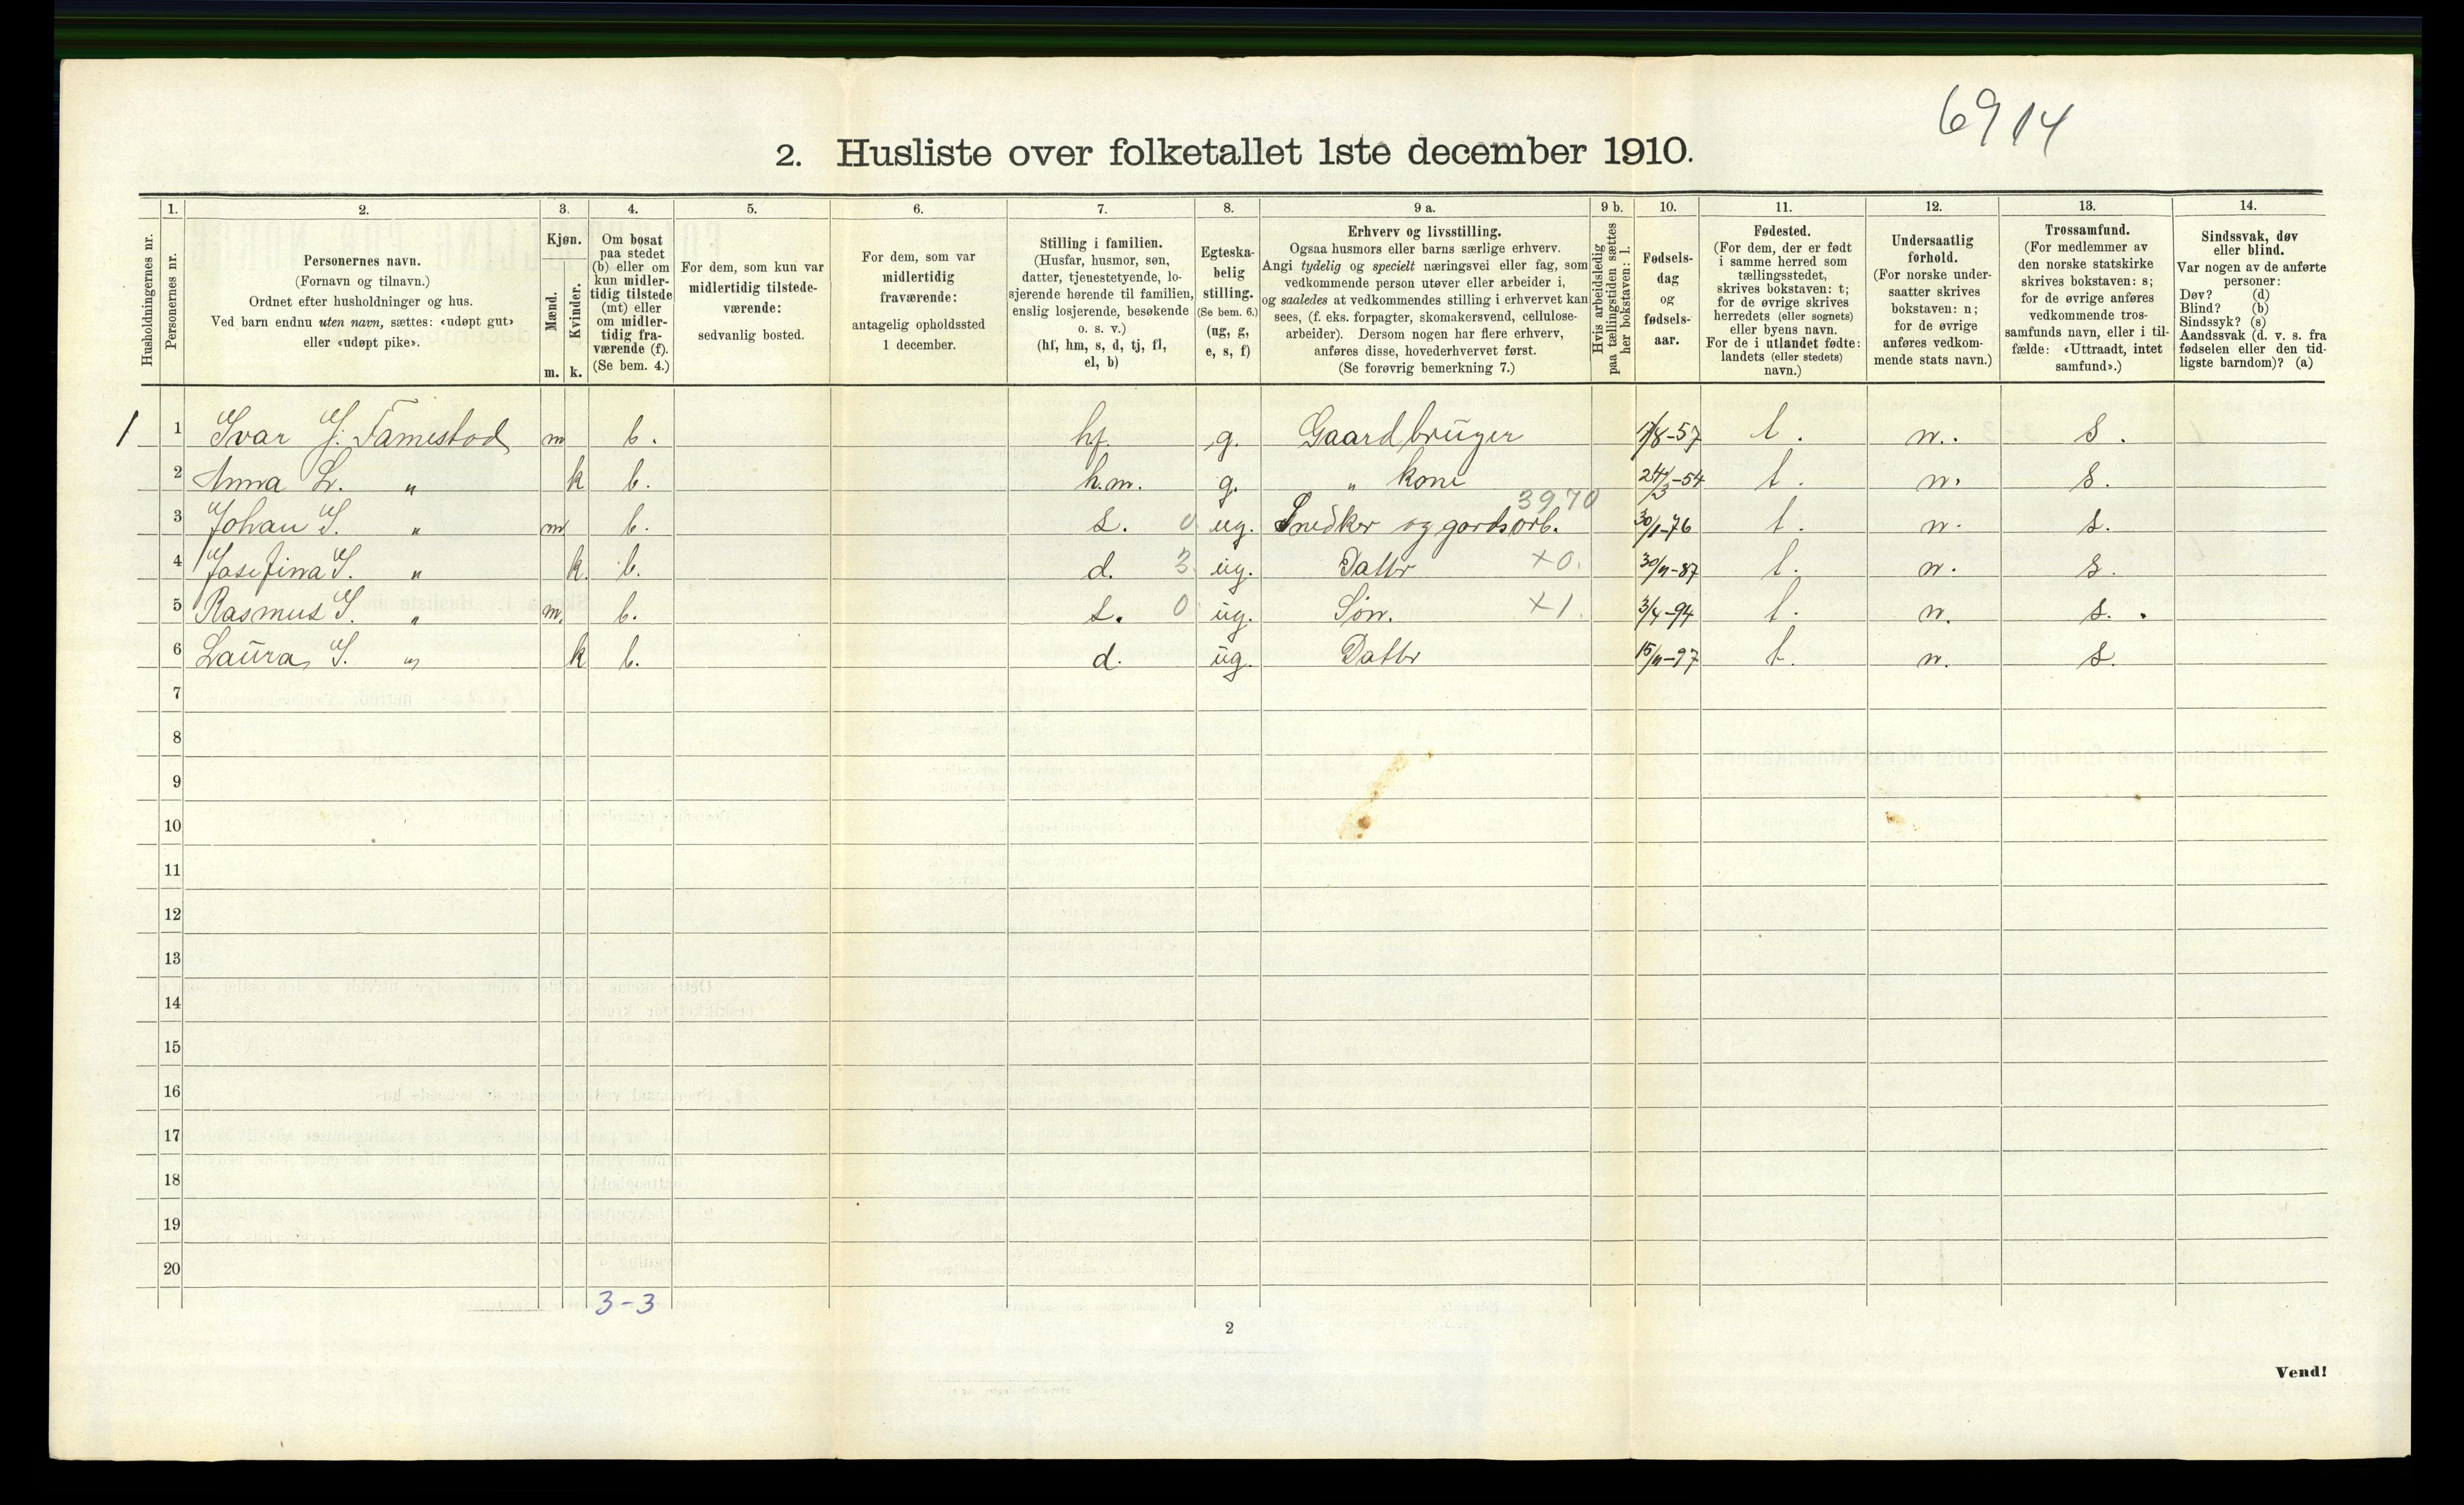 6914
2. Husliste over folketallet 1ste december 1910.
Husholdningernes nr.
1.
Personernes nr.
2.
Personernes navn.
(Fornavn og tilnavn.)
Ordnet efter husholdninger og hus.
Ved barn endnu uten navn, sættes: «udøpt gut»
eller «udøpt pike».
3.
Kjøn.
Mænd.
Kvinder.
m. k.
4.
Om bosat
paa stedet
(b) eller om
kun midler-
tidig tilstede
(mt) eller
om midler-
tidig fra-
værende (f).
(Se bem. 4.)
5.
For dem, som kun var
midlertidig tilstede-
værende:
sedvanlig bosted.
6.
For dem, som var
midlertidig
fraværende:
antagelig opholdssted
1 december.
7.
Stilling i familien.
(Husfar, husmor, søn,
datter, tjenestetyende, lo-
sjerende hørende til familien,
enslig losjerende, besøkende
o. s. v.)
(hf, hm, s, d, tj, fl,
el, b)
8.
Egteska-
belig
stilling.
(Se bem. 6.)
(ug, g,
e, s, f)
9 a.
Erhverv og livsstilling.
Ogsaa husmors eller barns særlige erhverv.
Angi tydelig og specielt næringsvei eller fag, som
vedkommende person utøver eller arbeider i,
og saaledes at vedkommendes stilling i erhvervet kan
sees, (f. eks. forpagter, skomakersvend, cellulose-
arbeider). Dersom nogen har flere erhverv,
anføres disse, hovederhvervet først.
(Se forøvrig bemerkning 7.)
9 b.
Hvis arbeidsledig
paa tællingstiden sættes
her bokstaven: l.
10.
Fødsels-
dag
og
fødsels-
aar.
11.
Fødested.
(For dem, der er født
i samme herred som
tællingsstedet,
skrives bokstaven: t;
for de øvrige skrives
herredets (eller sognets)
eller byens navn.
For de i utlandet fødte:
landets (eller stedets)
navn.)
12.
Undersaatlig
forhold.
(For norske under-
saatter skrives
bokstaven: n;
for de øvrige
anføres vedkom-
mende stats navn.)
13.
Trossamfund.
(For medlemmer av
den norske statskirke
skrives bokstaven: s;
for de øvrige anføres
vedkommende tros-
samfunds navn, eller i til-
fælde: «Uttraadt, intet
samfund».)
14.
Sindssvak, døv
eller blind.
Var nogen av de anførte
personer:
Døv? (d)
Blind? (b)
Sindssyk? (s)
Aandssvak (d. v. s. fra
fødselen eller den tid-
ligste barndom)? (a)
1 1 Ivar J. Tamestod m b. hf. g. Gaardbruger 17/8-57 t. n. s.
2 Anna L. " k b. h.m. g. " kone 24/3-54 t. n. s.
3970
3 Johan I. " m b. s. 0 ug. Snedker og gardsarb. 30/1-76 t. n. s.
4 Josefina I. " k. b. d. 3 ug. Datter x 0. 30/11-87 t. n. s.
5 Rasmus I. " m. b. s. 0 ug. Søn. x 1. 3/4-94 t. n. s.
6 Laura I. " k b. d. ug. Datter 15/11-97 t. n. s.
7
8
9
10
11
12
13
14
15
16
17
18
19
20
3-3
2
Vend!